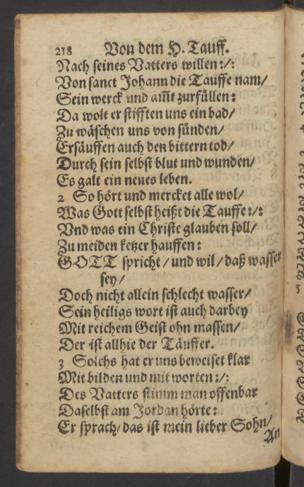 218 Von dem H. Tauff.
Nach seines Vatters willen:/:
Von sanct Johann die Tauffe nam/
Sein werck und ampt zurfüllen:
Da wolt er stifften uns ein bad/
Zu wäschen uns von sünden/
Ersäuffen auch den bittern tod/
Durch sein selbst blut und wunden/
Es galt ein neues leben.
2 So hört und mercket alle wol/
Was Gott selbst heißt die Tauffe:/:
Vnd was ein Christe glauben soll/
Zu meiden ketzer hauffen:
GOTT spricht/ und wil/ daß wasser
sey/
Doch nicht allein schlecht wasser/
Sein heiligs wort ist auch darbey
Mit reichem Geist ohn massen/
Der ist allhie der Täuffer.
3 Solchs hat er uns beweiset klar
Mit bilden und mit worten:/:
Des Vatters stimm man offenbar
Daselbst am Jordan hörte:
Er sprach/ das ist mein lieber Sohn/
An